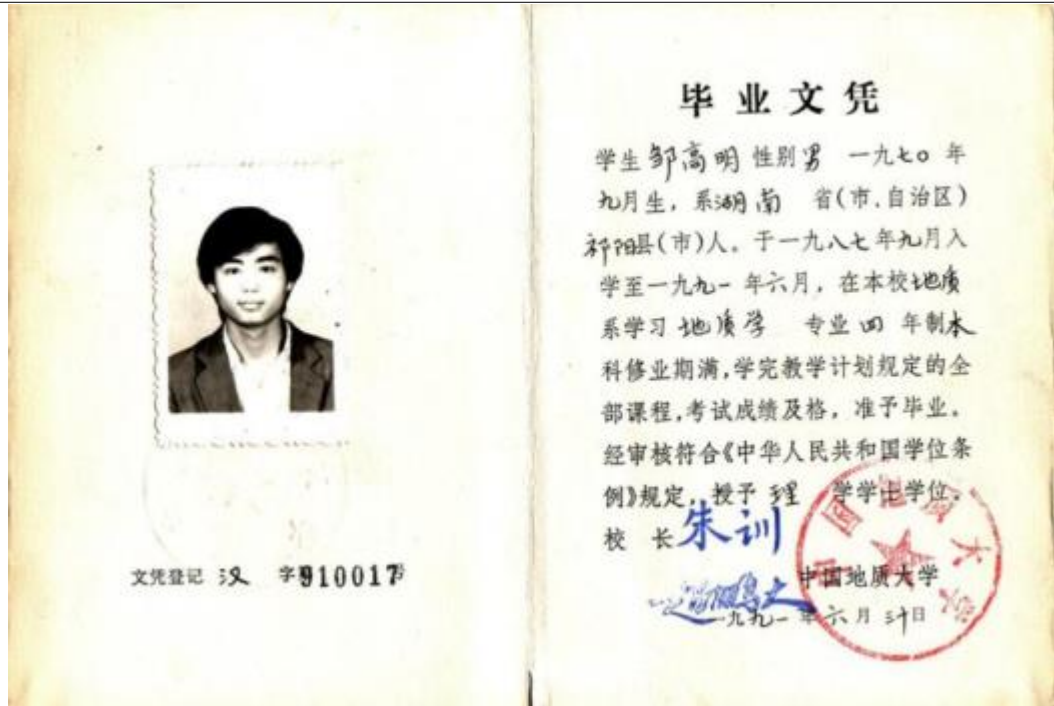 文凭登记 汉 字 910017号
毕业文凭
学生 邹高明 性别 男 一九七〇 年
九月生，系湖南 省(市、自治区)
祁阳县(市)人。于一九八七年九月入
学至一九九一 年六月，在本校地质
系学习 地质学 专业 四 年制本
科修业期满，学完教学计划规定的全
部课程，考试成绩及格，准予毕业。
经审核符合《中华人民共和国学位条
例》规定，授予 理 学学士学位。
校 长 朱训
中国地质大学
一九九一 年 六 月 卅日
中国地质大学